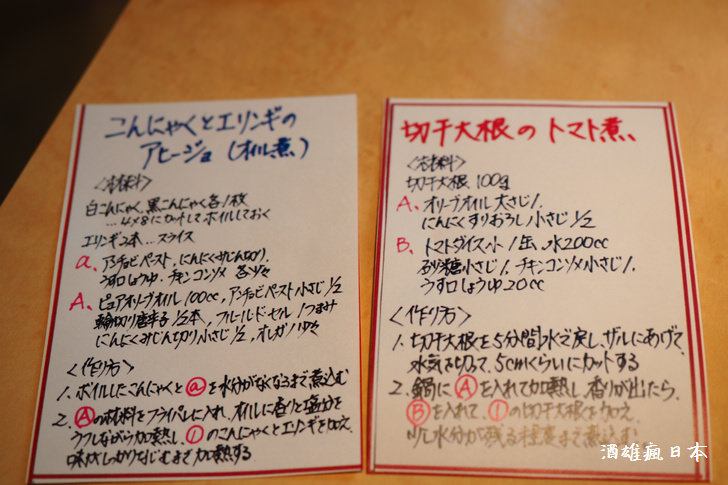 こんにゃくとエリンギの
アヒージョ（オイル煮）
〈材料〉
白こんにゃく、黒こんにゃく各1枚
…4×8にカットしてボイルしておく
エリンギ2本…スライス
a、アンチョビペースト、にんにくみじん切り、
うす口しょうゆ、チキンコンソメ 各少々
A、ピュアオリーブオイル100cc、アンチョビペースト小さじ1/2
輪切り唐辛子1/2本、フルールド・セル1つまみ
にんにくみじん切り小さじ1/2、オレガノ少々
〈作り方〉
1、ボイルしたこんにゃくとⓐを水分がなくなるまで煮込む
2、Ⓐの材料をフライパンに入れ、オイルに香りと塩分を
うつしながら加熱し、①のこんにゃくとエリンギを加え、
味がしっかりなじむまで加熱する
切干大根のトマト煮
〈材料〉
切干大根 100g
A、オリーブオイル大さじ1、
にんにくすりおろし小さじ1/2
B、トマトダイス小1缶、水200cc
砂糖小さじ1、チキンコンソメ小さじ1、
うす口しょうゆ20cc
〈作り方〉
1、切干大根を5分間水で戻し、ザルにあげて、
水気を切って、5cmくらいにカットする
2、鍋にⒶを入れて加熱し、香りが出たら、
Ⓑを入れて、①の切干大根を加え、
少し水分が残る程度まで煮込む
酒雄瘋日本